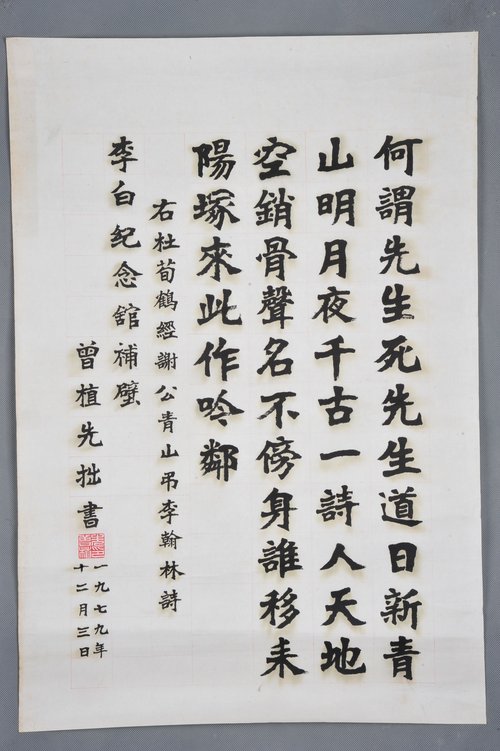 何謂先生死先生道日新青
山明月夜千古一詩人天地
空銷骨聲名不傍身誰移耒
陽塚來此作吟鄰
右杜荀鶴經謝公青山弔李翰林詩
李白紀念舘補壁
曾植先拙書
一九七九年
十二月三日